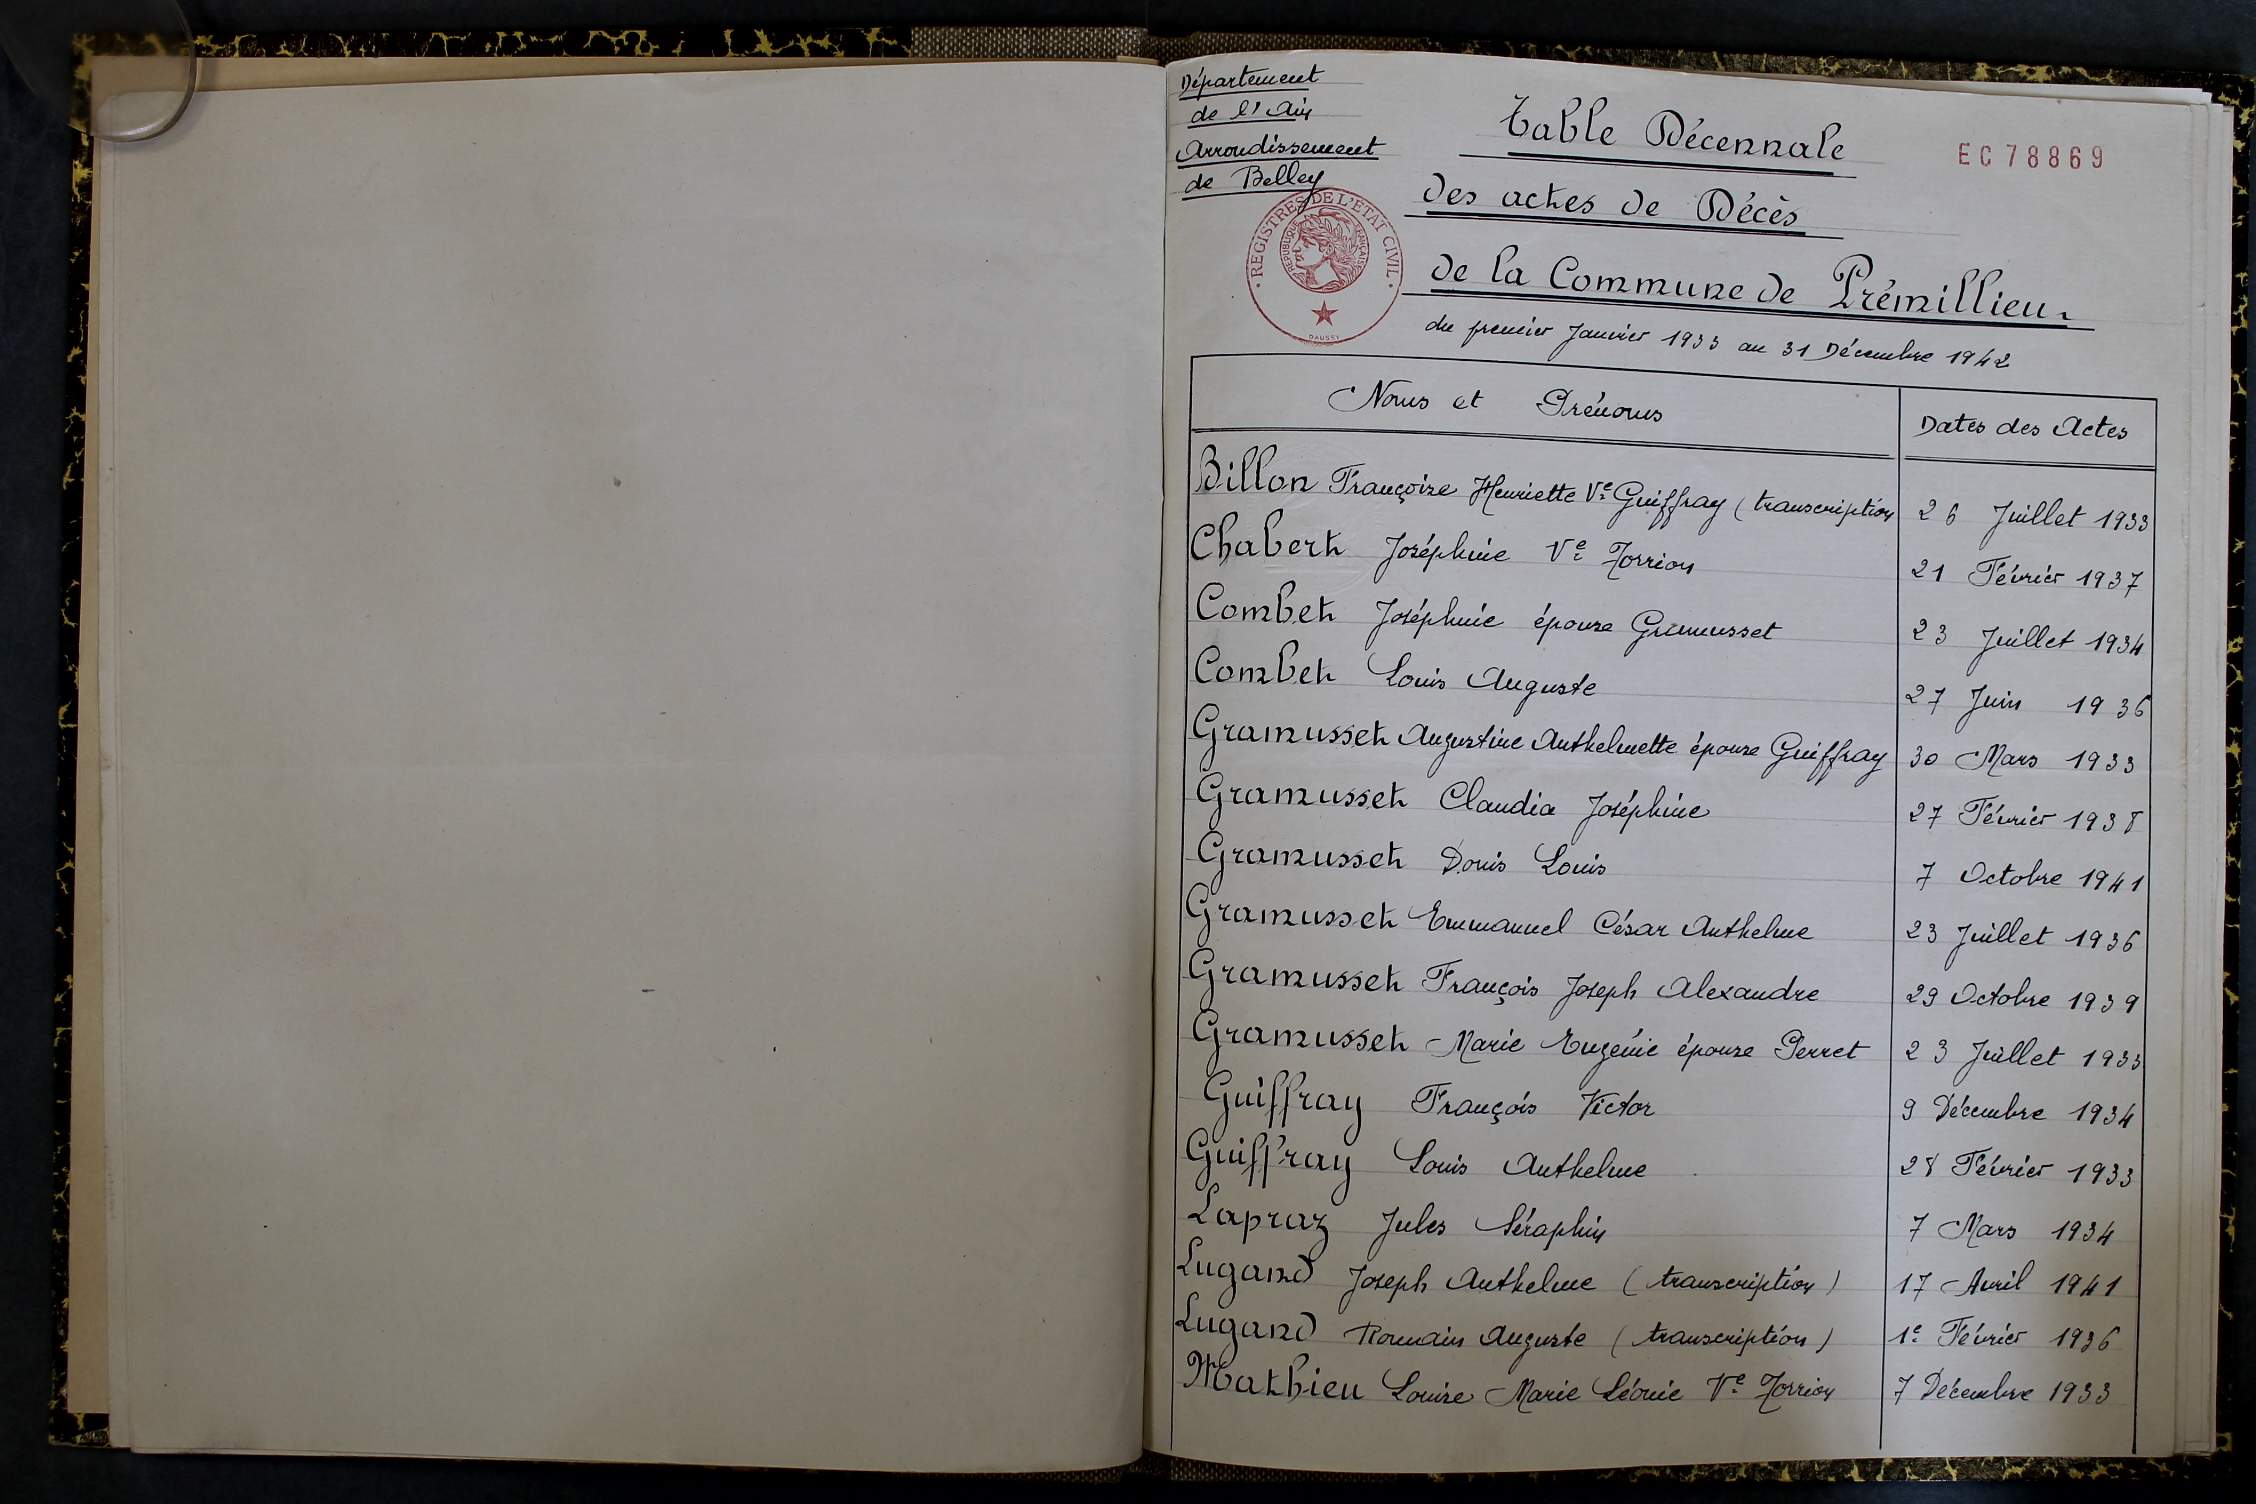 Département
de l'Ain
Arrondissement
de Belley
Table Décennale
EC78869
des actes de Décès
de la Commune de Prémillieu.
du premier Janvier 1933 au 31 Décembre 1942
REGISTRES DE L'ETAT CIVIL
REPUBLIQUE FRANÇAISE
DAUSSY
Noms et Prénoms Dates des Actes
Billon Françoise Henriette Ve Guiffray (transcription 26 Juillet 1933
Chabert Joséphine Ve Jorrion 21 Février 1937
Combet Joséphine épouse Gramusset 23 Juillet 1934
Combet Louis Auguste 27 Juin 1936
Gramusset Augustine Anthelmette épouse Guiffray 30 Mars 1933
Gramusset Claudia Joséphine 27 Février 1938
Gramusset Donis Louis 7 Octobre 1941
Gramusset Emmanuel César Anthelme 23 Juillet 1936
Gramusset François Joseph Alexandre 29 Octobre 1939
Gramusset Marie Eugénie épouse Perret 23 Juillet 1933
Guiffray François Victor 9 Décembre 1934
Guiffray Louis Anthelme 28 Février 1933
Lapraz Jules Séraphin 7 Mars 1934
Lugand Joseph Anthelme (transcription) 17 Avril 1941
Lugand Romain Auguste (transcription) 1e Février 1936
Mathieu Louise Marie Léonie Ve Jorrion 7 Décembre 1933